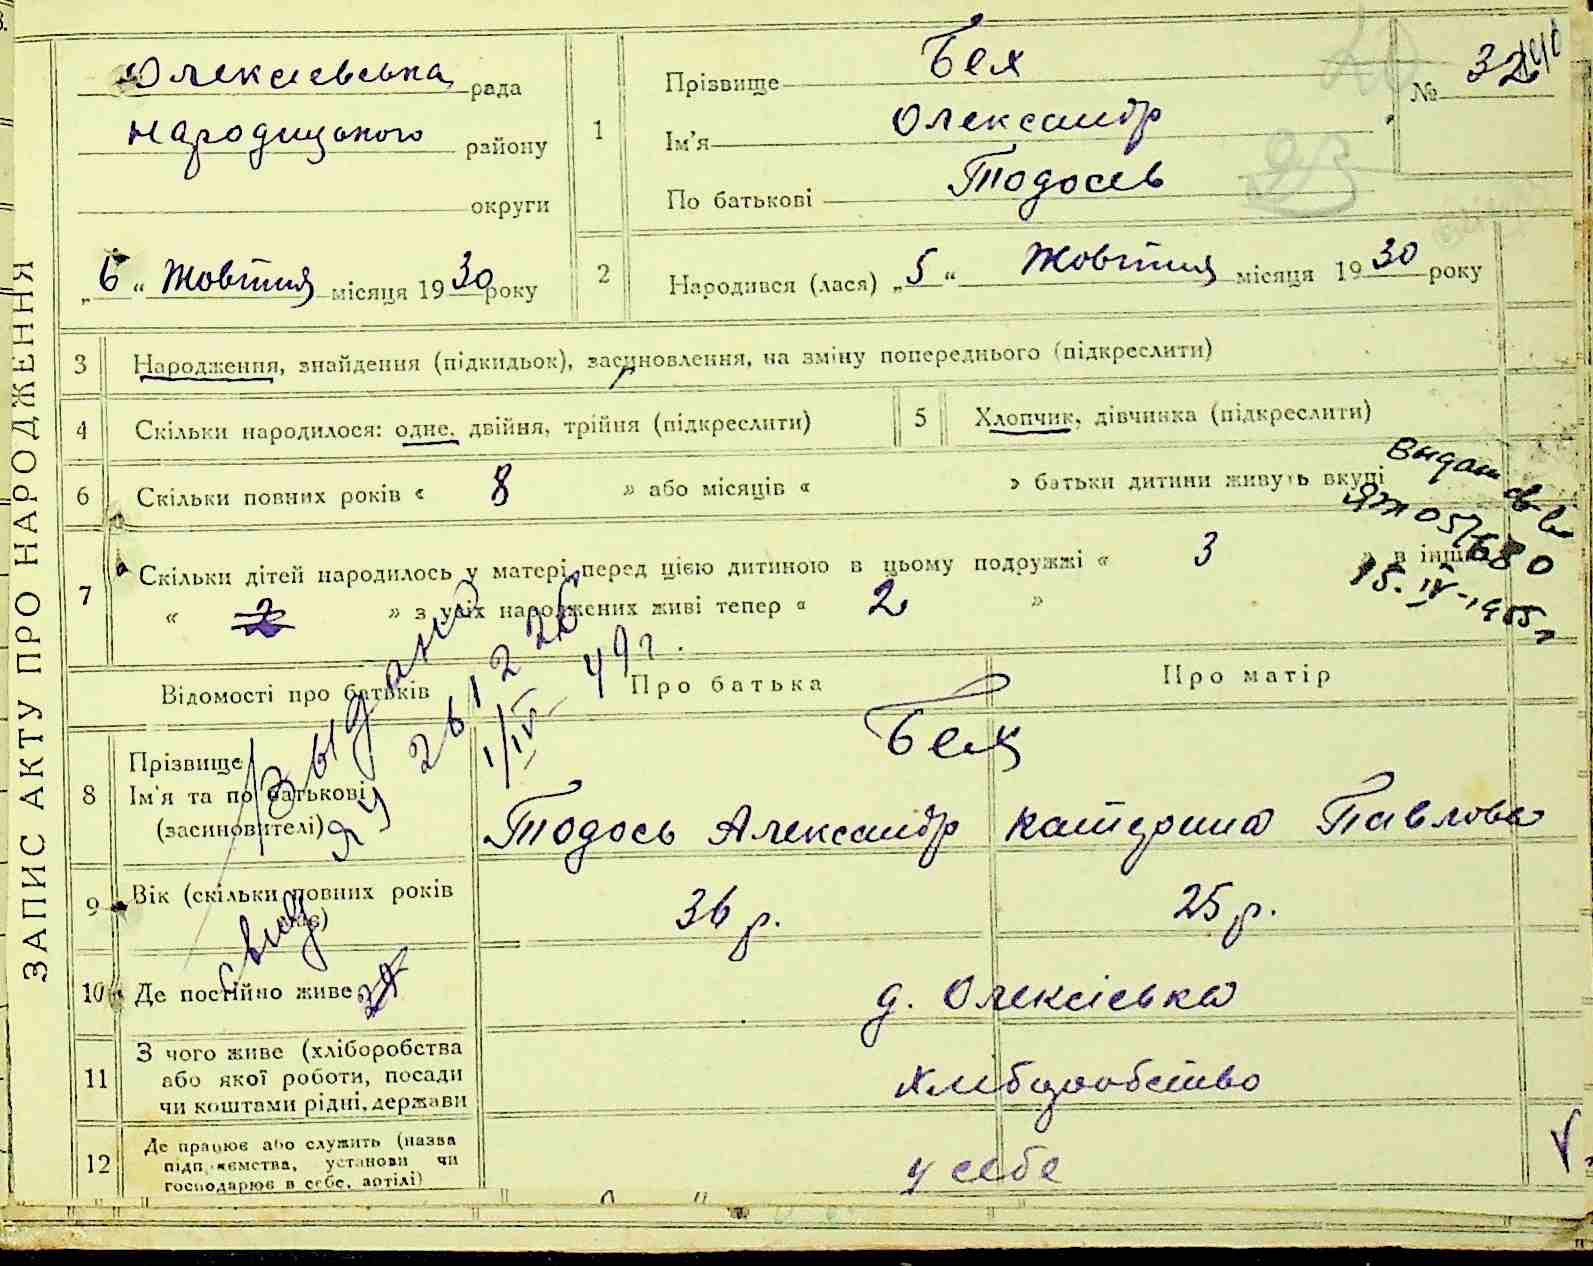 ЗАПИС АКТУ ПРО НАРОДЖЕННЯ
Олексієвська рада
Народицького району
округи
„6“ Жовтня місяця 1930 року
1
Прізвище Бех
Ім'я Олександр
По батькові Тодосев
№ 32
2
Народився (лася) „5“ Жовтня місяця 1930 року
3 Народження, знайдення (підкидьок), засиновлення, на зміну попереднього (підкреслити)
4 Скільки народилося: одне, двійня, трійня (підкреслити)
5 Хлопчик, дівчинка (підкреслити)
6 Скільки повних років « 8 » або місяців « » батьки дитини живуть вкупі
7 Скільки дітей народилось у матері перед цією дитиною в цьому подружжі « 3 » в інш
« 2 » з усіх народжених живі тепер « 2 »
Видан св-во
ЯТ 057680
15.IV-1955г
Відомості про батьків
Про батька
Про матір
8 Прізвище
Ім'я та по батькові
(засиновителі)
Бех
Тодось Александр
Катерина Павлова
9 Вік (скільки повних років має)
36 р.
25 р.
10 Де постійно живе
д. Олексієвка
11 З чого живе (хліборобства
або якої роботи, посади
чи коштами рідні, держави
Хліборобство
12 Де працює або служить (назва
підприємства, установи чи
господарює в себе, артілі)
у себе
Выдано
свид
1/IV-49г.